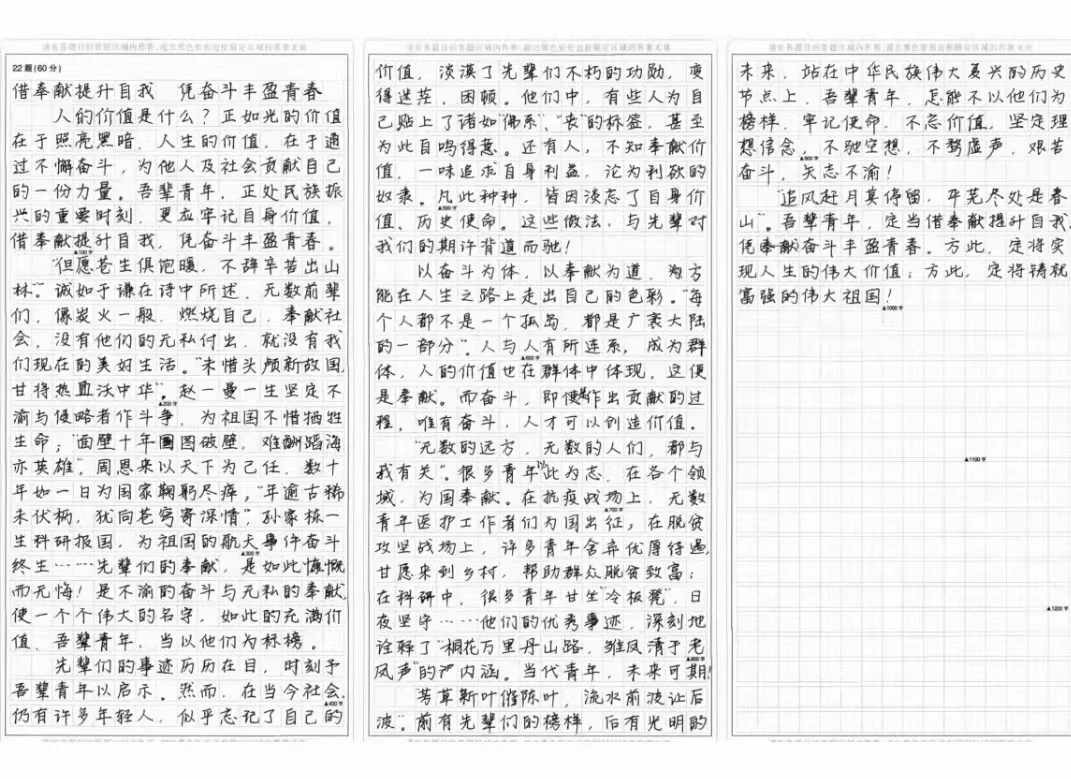 22题(60分)
借奉献提升自我 凭奋斗丰盈青春
人的价值是什么？正如光的价值
在于照亮黑暗，人生的价值，在于通
过不懈奋斗，为他人及社会贡献自己
的一份力量。吾辈青年，正处民族振
兴的重要时刻，更应牢记自身价值，
借奉献提升自我，凭奋斗丰盈青春。
“但愿苍生俱饱暖，不辞辛苦出山
林。”诚如于谦在诗中所述，无数前辈
们，像炭火一般，燃烧自己，奉献社
会，没有他们的无私付出，就没有我
们现在的美好生活。“未惜头颅新故国，
甘将热血沃中华”。赵一曼一生坚定不
渝与侵略者作斗争，为祖国不惜牺牲
生命；“面壁十年图破壁，难酬蹈海
亦英雄”，周恩来以天下为己任，数十
年如一日为国家鞠躬尽瘁，“年逾古稀
未伏枥，犹向苍穹寄深情”，孙家栋一
生科研报国，为祖国的航天事件奋斗
终生……先辈们的奉献，是如此慷慨
而无悔！是不渝的奋斗与无私的奉献，
使一个个伟大的名字，如此的充满价
值，吾辈青年，当以他们为标榜。
先辈们的事迹历历在目，时刻予
吾辈青年以启示。然而，在当今社会，
仍有许多年轻人，似乎忘记了自己的
价值，淡漠了先辈们不朽的功勋，变
得迷茫，困顿。他们中，有些人为自
己贴上了诸如“佛系”、“丧”的标签，甚至
为此自鸣得意。还有人，不知奉献价
值，一味追求自身利益，沦为利欲的
奴隶。凡此种种，皆因淡忘了自身价
值、历史使命。这些做法，与先辈对
我们的期许背道而驰！
以奋斗为体，以奉献为道，方
能在人生之路上走出自己的色彩。“每
个人都不是一个孤岛，都是广袤大陆
的一部分”。人与人有所连系，成为群
体，人的价值也在群体中体现，这便
是奉献。而奋斗，即使是作出贡献的过
程，唯有奋斗，人才可以创造价值。
“无数的远方，无数的人们，都与
我有关”。很多青年以此为志，在各个领
域，为国奉献。在抗疫战场上，无数
青年医护工作者们为国出征，在脱贫
攻坚战场上，许多青年舍弃优厚待遇，
甘愿来到乡村，帮助群众脱贫致富；
在科研中，很多青年甘坐“冷板凳”，日
夜坚守……他们的优秀事迹，深刻地
诠释了“桐花万里丹山路，雏凤清于老
凤声”的内涵。当代青年，未来可期！
芳草新叶催陈叶，流水前波让后
波”。前有先辈们的榜样，后有光明的
未来，站在中华民族伟大复兴的历史
节点上，吾辈青年，怎能不以他们为
榜样，牢记使命，不忘价值，坚定理
想信念，不驰空想，不骛虚声，艰苦
奋斗，矢志不渝！
“追风赶月莫停留，平芜尽处是春
山”。吾辈青年，定当借奉献提升自我，
凭奋斗丰盈青春。方此，定将实
现人生的伟大价值；方此，定将铸就
富强的伟大祖国！